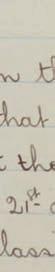 that
the
21st
lass